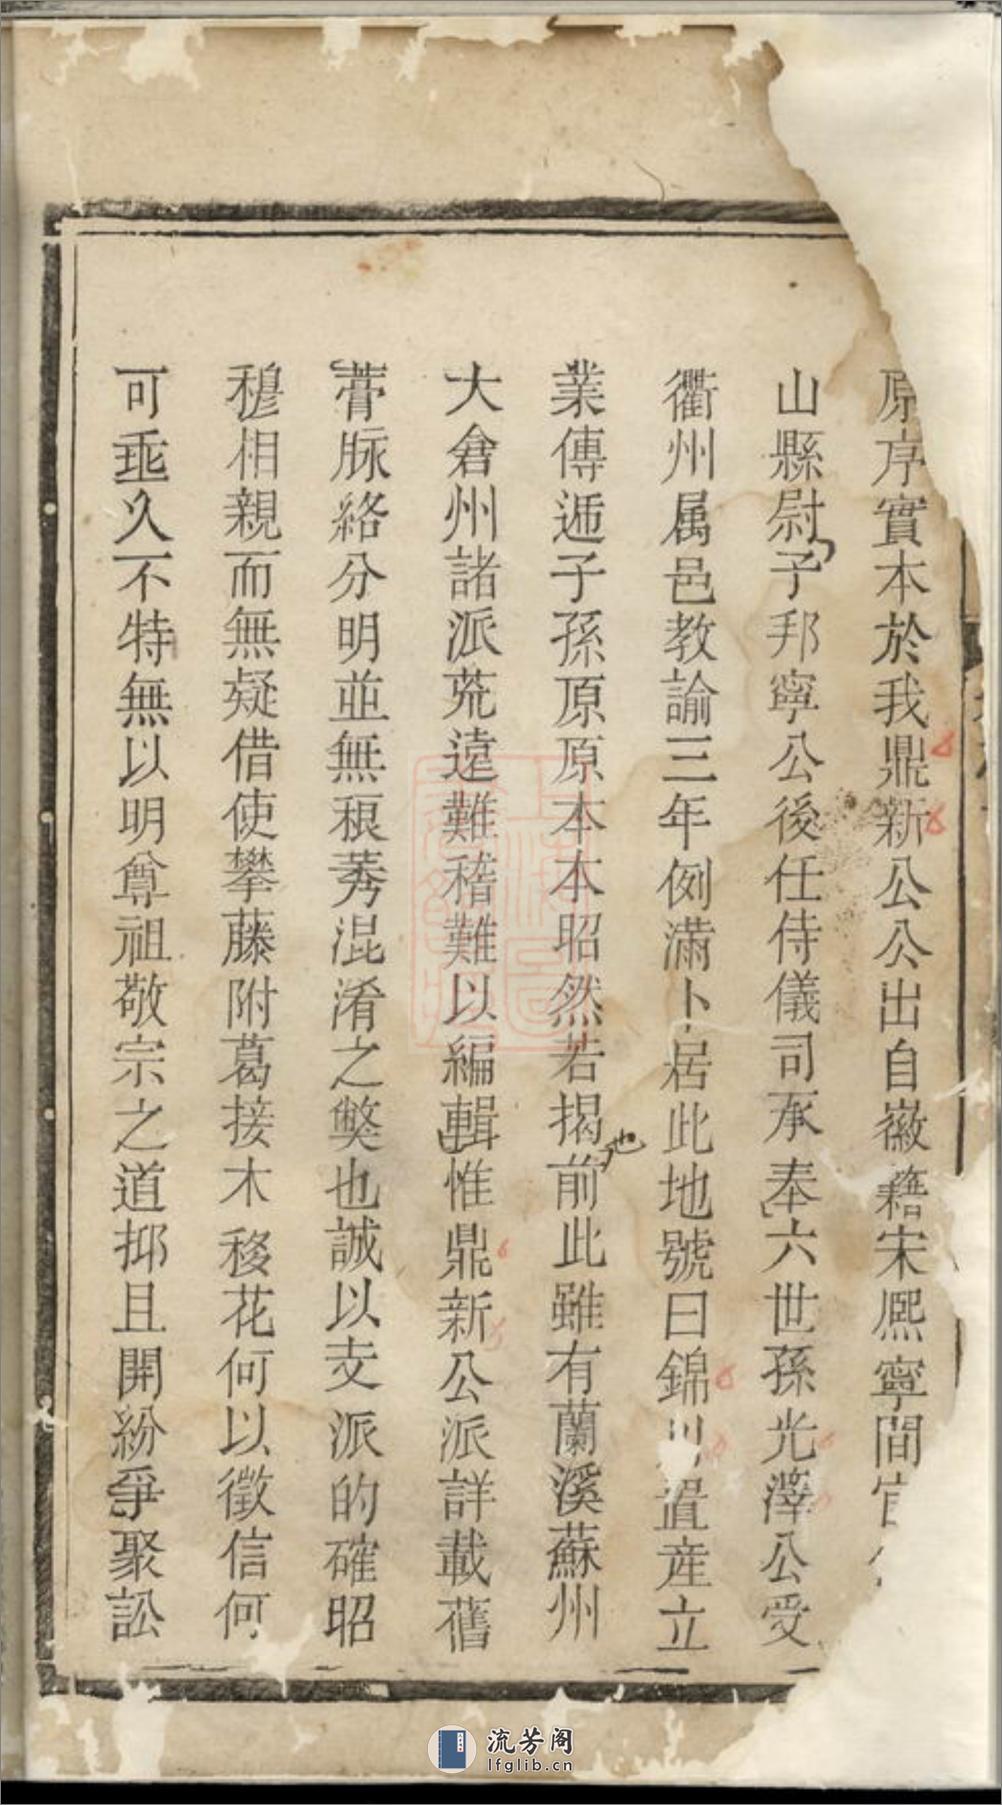 原序實本於我鼎新公公出自徽籍宋熈寧間官
山縣尉子邦寧公後任侍儀司承奉六世孫光澤公受
衢州属邑教諭三年例滿卜居此地號曰錦川置産立
業傳逓子孫原原本本昭然若揭也前此雖有蘭溪蘇州
大倉州諸派荒遠難稽難以編輯惟鼎新公派詳載舊
脉絡分明並無稂莠混淆之獘也誠以支派的確昭
穆相親而無疑借使攀藤附葛接木移花何以徵信何
可垂久不特無以明尊祖敬宗之道抑且開紛爭聚訟
流芳阁
lfglib.cn